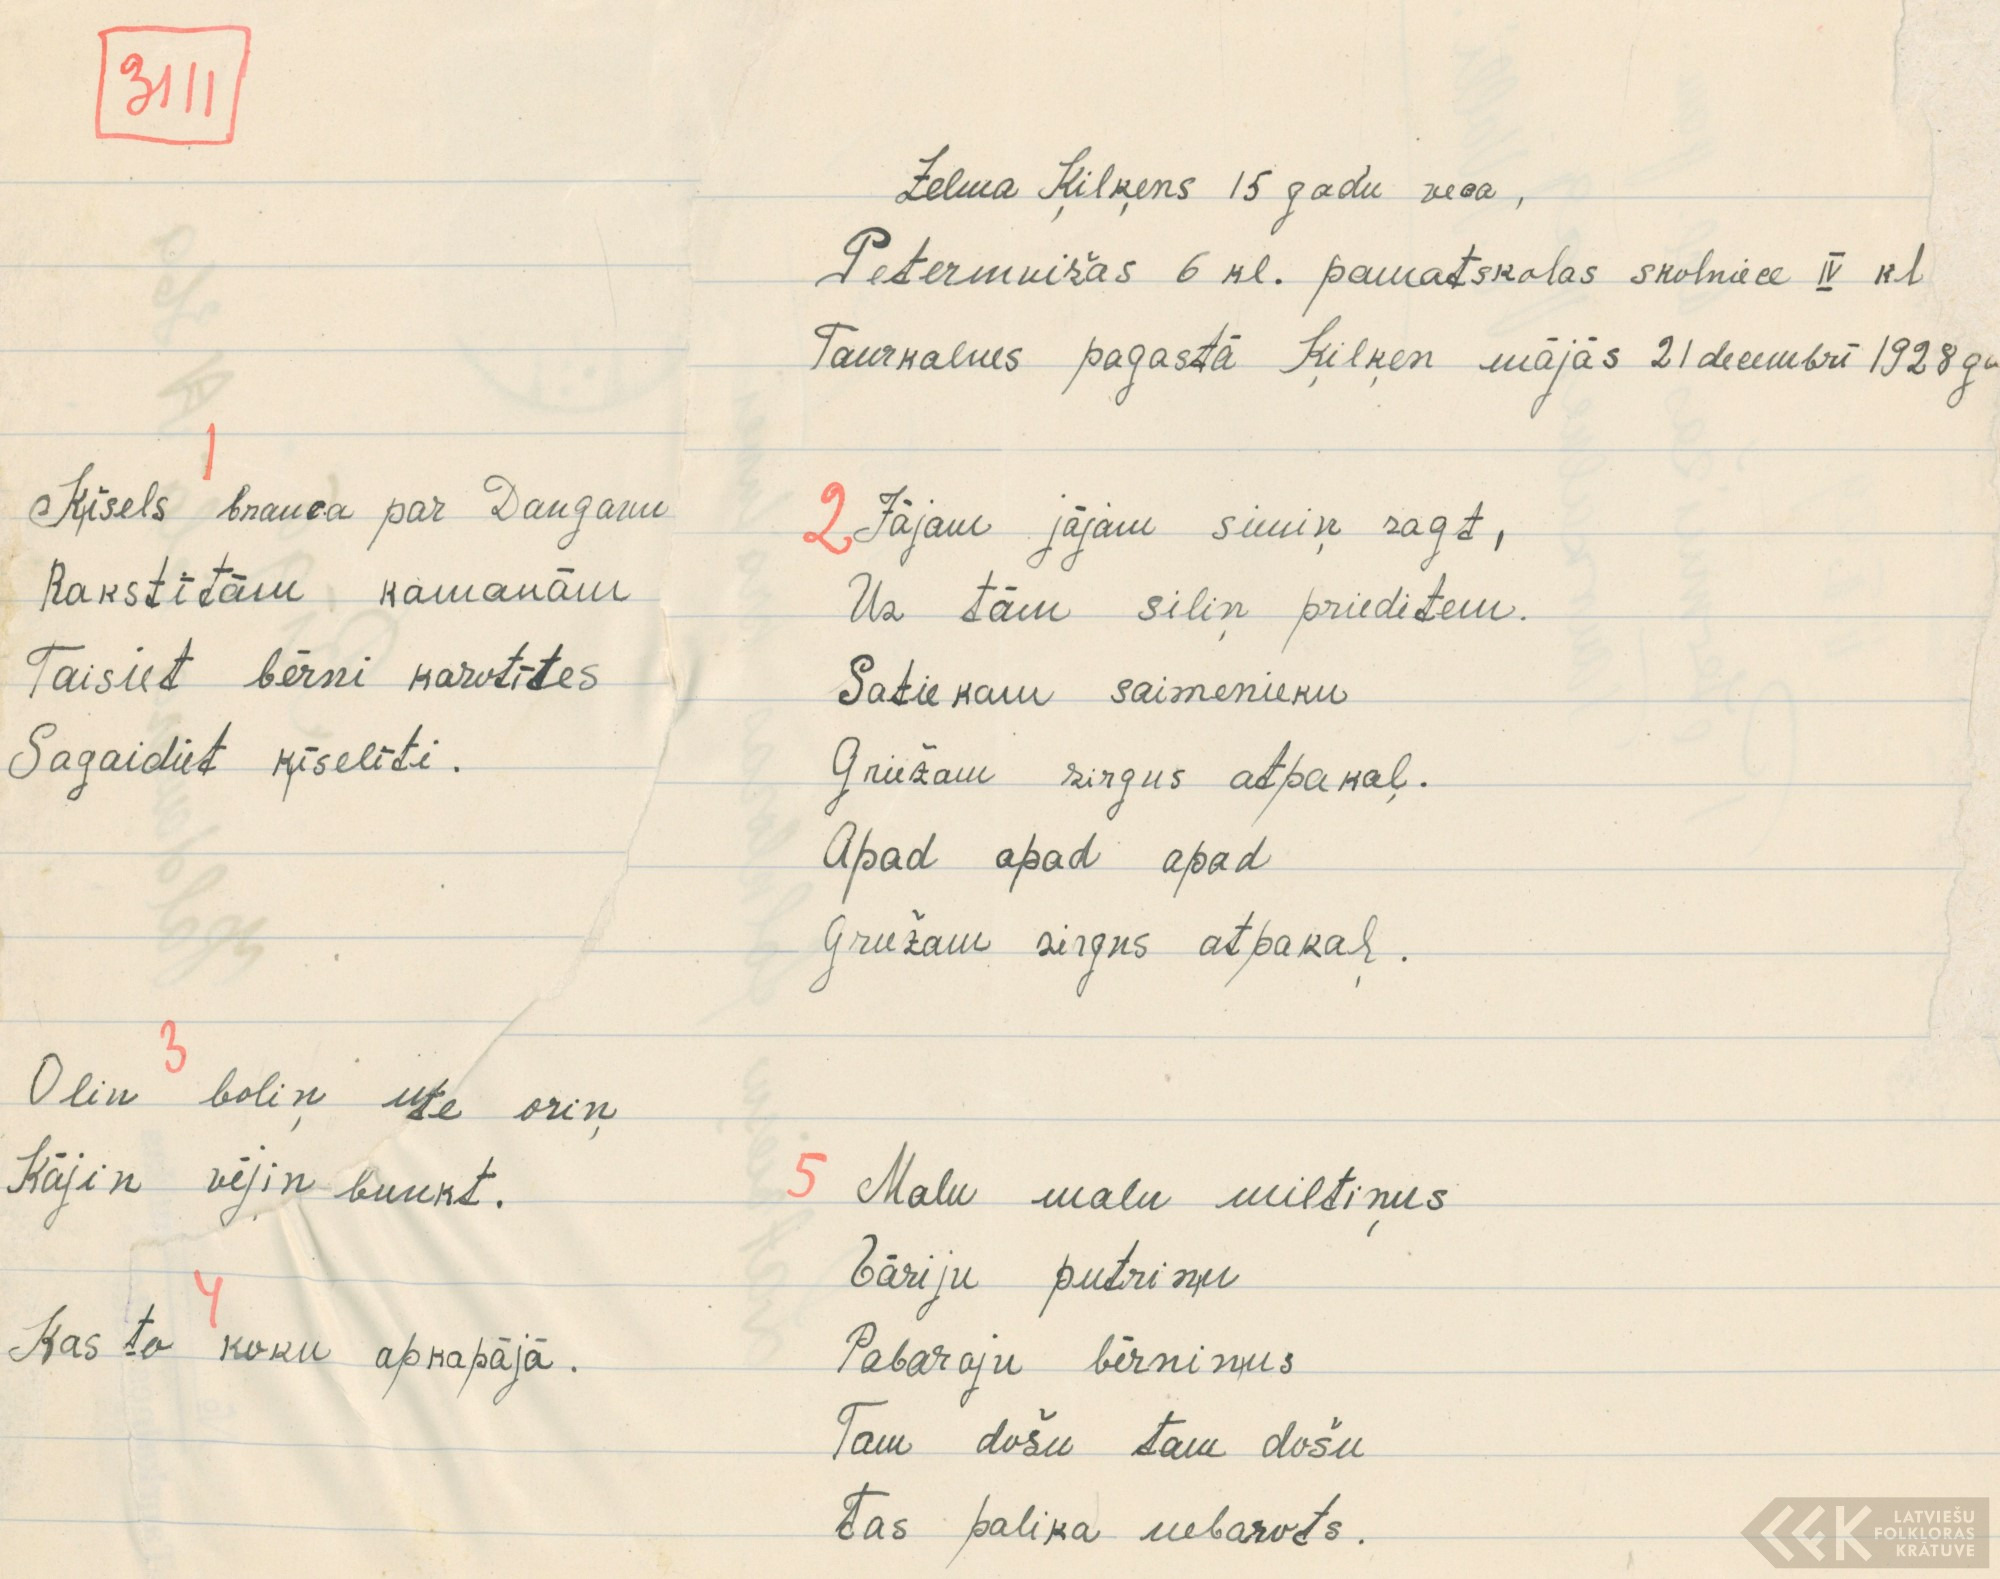 3111
Zelma Ķilķens 15 gadu veca,
Petermuižas 6 kl. pamatskolas skolniece IV kl
Taurkalnes pagastā Ķilķen mājās 21 decembrī 1928 g
1
Ķīsels brauca par Daugavu
Rakstītām kamanām
Taisiet bērni karotītes
Sagaidiet ķīselīti.
2 Jājam jājam simiņ zagt,
Uz tām siliņ prieditem.
Satiekam saimenieku
Griežam zirgus atpakaļ.
Apad apad apad
Griežam zirgus atpakaļ.
3
Olin boliņ ute oriņ
Kājin vējiņ bunkt.
4
Kas to koku apkapājā.
5 Malu malu miltiņus
Vāriju putriņu
Pabaroju bērniņus
Tam došu tam došu
Tas palika nebarots.
LATVIEŠU
FOLKLORAS
KRĀTUVE